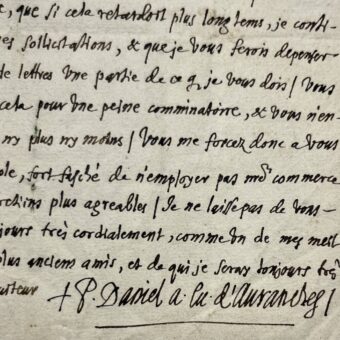 , que si cela retardoit plus long tems, je conti-
es sollicitations, & que je vous ferois depenser
de lettres Une partie de ce q, je vous dois / Vous
cela pour Une peine comminatoire, & vous n'en-
ny plus ny moins / Vous me forcez donc a vous
ble, fort fasché de n'employer pas commerce
plus agreables / Je ne laisse pas de vous-
jours très cordialement, comme Un de mes meil
plus anciens amis, et de qui je seray toujours très
+ P. Daniel a. Ev. d'Avranches /